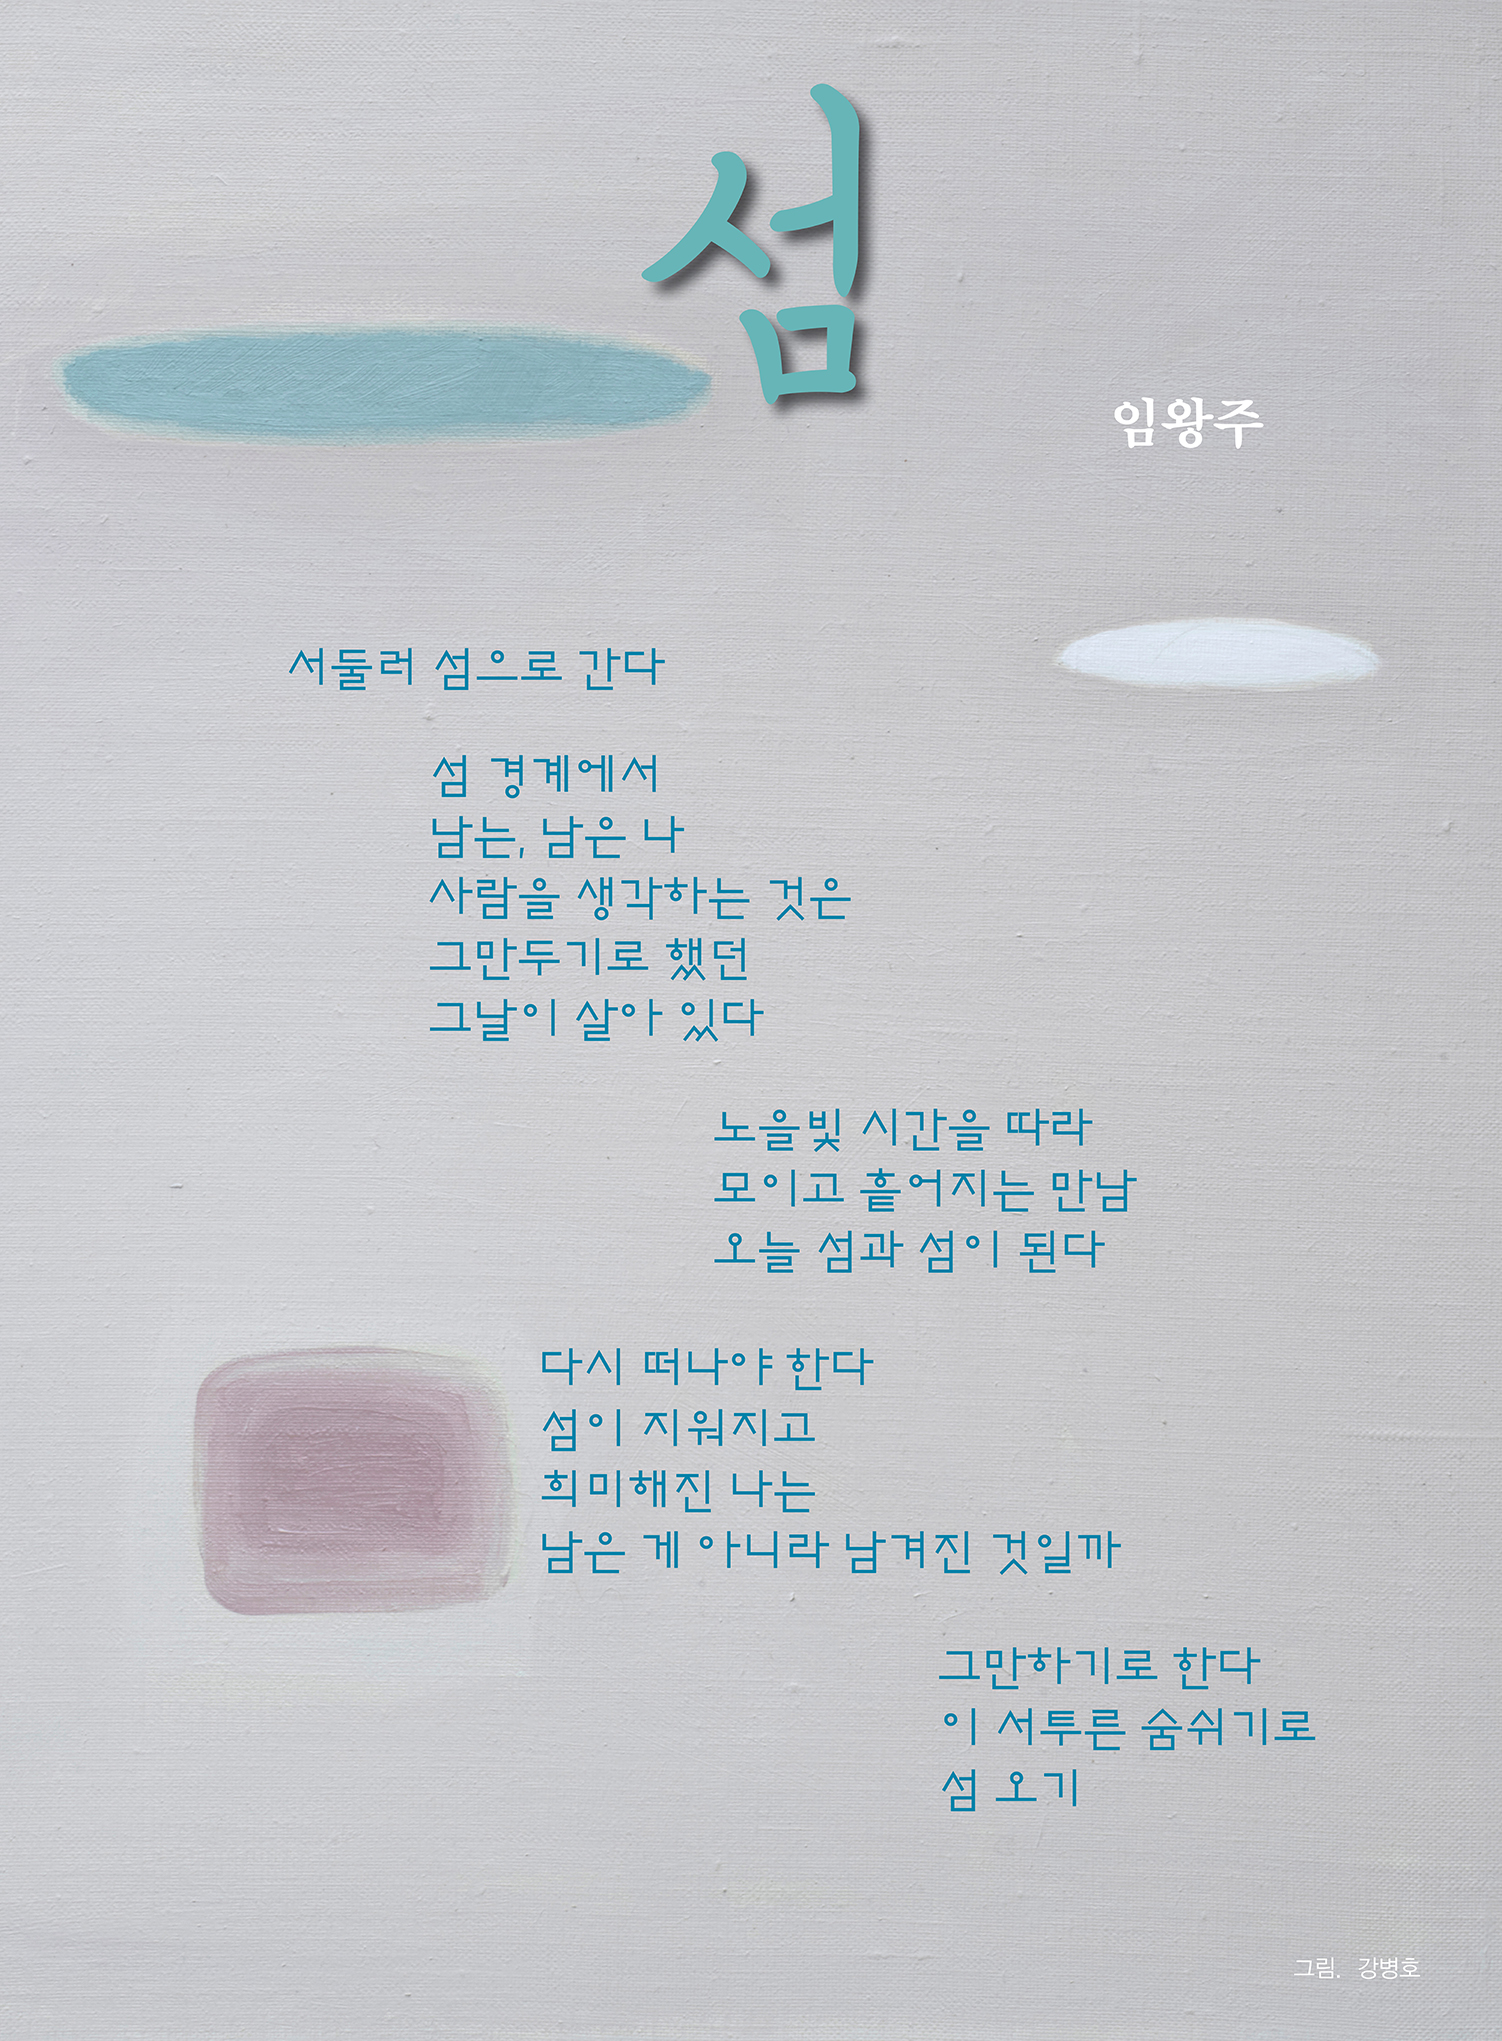 섬
임왕주
서둘러 섬으로 간다
섬 경계에서
남는, 남은 나
사람을 생각하는 것은
그만두기로 했던
그날이 살아 있다
노을빛 시간을 따라
모이고 흩어지는 만남
오늘 섬과 섬이 된다
다시 떠나야 한다
섬이 지워지고
희미해진 나는
남은 게 아니라 남겨진 것일까
그만하기로 한다
이 서투른 숨쉬기로
섬 오기
그림. 강병호